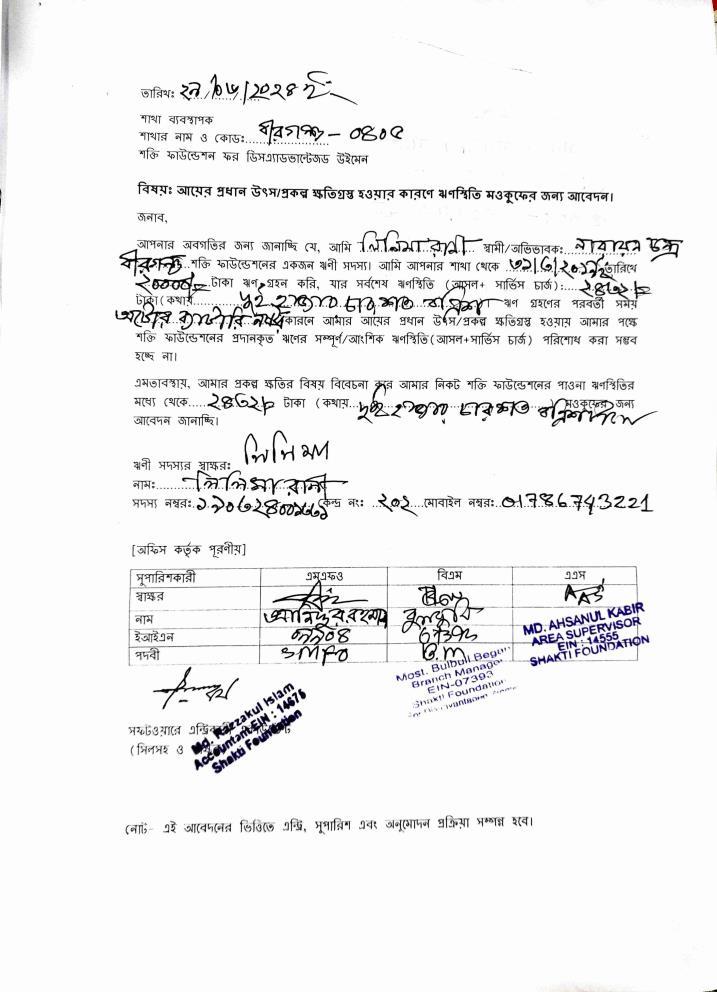 তারিখ: ২৭/০৬/২০২৪ ইং
শাখা ব্যবস্থাপক
শাখার নাম ও কোড: বীরগঞ্জ - ০৪০৫
শক্তি ফাউন্ডেশন ফর ডিসএ্যাডভান্টেজড উইমেন
বিষয়: আয়ের প্রধান উৎস/প্রকল্প ক্ষতিগ্রস্ত হওয়ার কারণে ঋণস্থিতি মওকুফের জন্য আবেদন।
জনাব,
আপনার অবগতির জন্য জানাচ্ছি যে, আমি লিলিমা রানী স্বামী/অভিভাবক: নারায়ন চন্দ্র
বীরগঞ্জ শক্তি ফাউন্ডেশনের একজন ঋণী সদস্য। আমি আপনার শাখা থেকে তারিখে
২০০০০/= টাকা ঋণ গ্রহন করি, যার সর্বশেষ ঋণস্থিতি (আসল+ সার্ভিস চার্জ):
টাকা(কথায় দুই হাজার চারশত বত্রিশ ঋণ গ্রহণের পরবর্তী সময়
অটোর ব্যাটারি নষ্ট কারনে আমার আয়ের প্রধান উৎস/প্রকল্প ক্ষতিগ্রস্ত হওয়ায় আমার পক্ষে
শক্তি ফাউন্ডেশনের প্রদানকৃত ঋণের সম্পূর্ণ/আংশিক ঋণস্থিতি(আসল+সার্ভিস চার্জ) পরিশোধ করা সম্ভব
হচ্ছে না।
এমতাবস্থায়, আমার প্রকল্প ক্ষতির বিষয় বিবেচনা করে আমার নিকট শক্তি ফাউন্ডেশনের পাওনা ঋণস্থিতির
মধ্যে থেকে ২৪৩২/= টাকা (কথায় দুই হাজার চারশত বত্রিশ মওকুফের জন্য
আবেদন জানাচ্ছি।
ঋণী সদস্যের স্বাক্ষর: লিলিমা
নাম: লিলিমা রানী
সদস্য নম্বর: কেন্দ্র নং: ২০২ মোবাইল নম্বর: 01786743221
[অফিস কর্তৃক পূরণীয়]
সুপারিশকারী এমএফও বিএম এএস
স্বাক্ষর
নাম
ইআইএন
পদবী SMFO B.M
MD. AHSANUL KABIR
AREA SUPERVISOR
EIN : 14555
SHAKTI FOUNDATION
Most. Bulbuli Begum
Branch Manager
EIN-07393
Shakti Foundation
Md. Razzakul Islam
Accountant EIN : 14676
Shakti Foundation
সফটওয়ারে
(সিলসহ ও
নোট- এই আবেদনের ভিত্তিতে এন্ট্রি, সুপারিশ এবং অনুমোদন প্রক্রিয়া সম্পন্ন হবে।